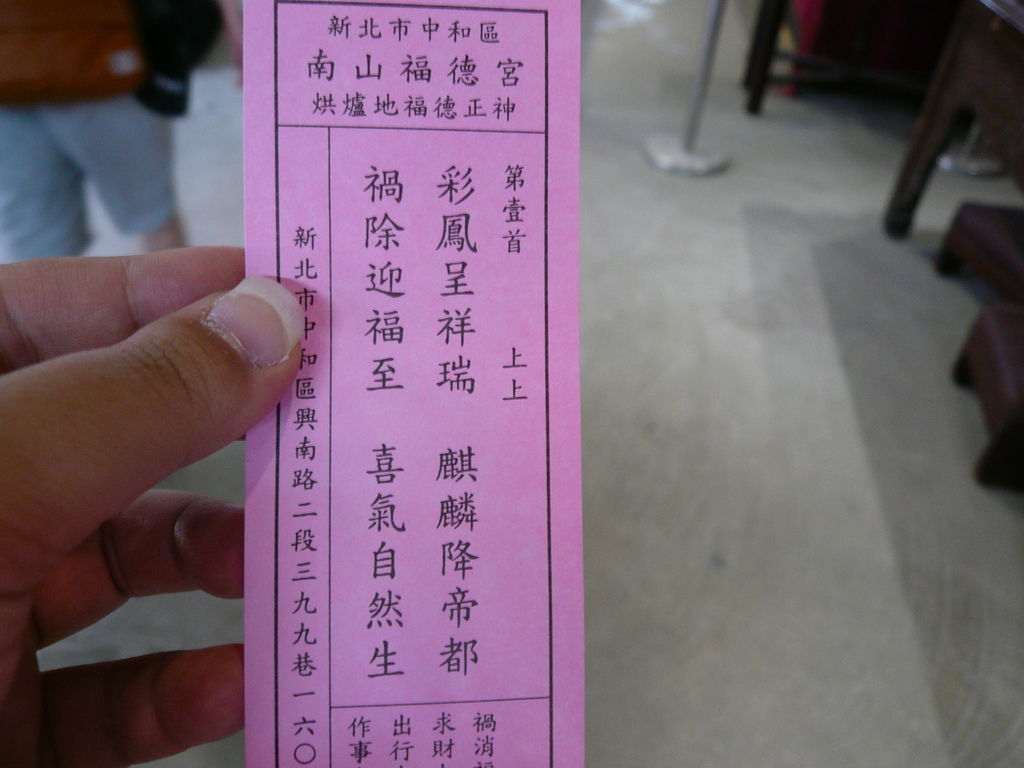 新北市中和區
南山福德宮
烘爐地福德正神
第壹首 上上
彩鳳呈祥瑞 麒麟降帝都
禍除迎福至 喜氣自然生
新北市中和區興南路二段三九九巷一六〇
禍消福
求財
出行
作事